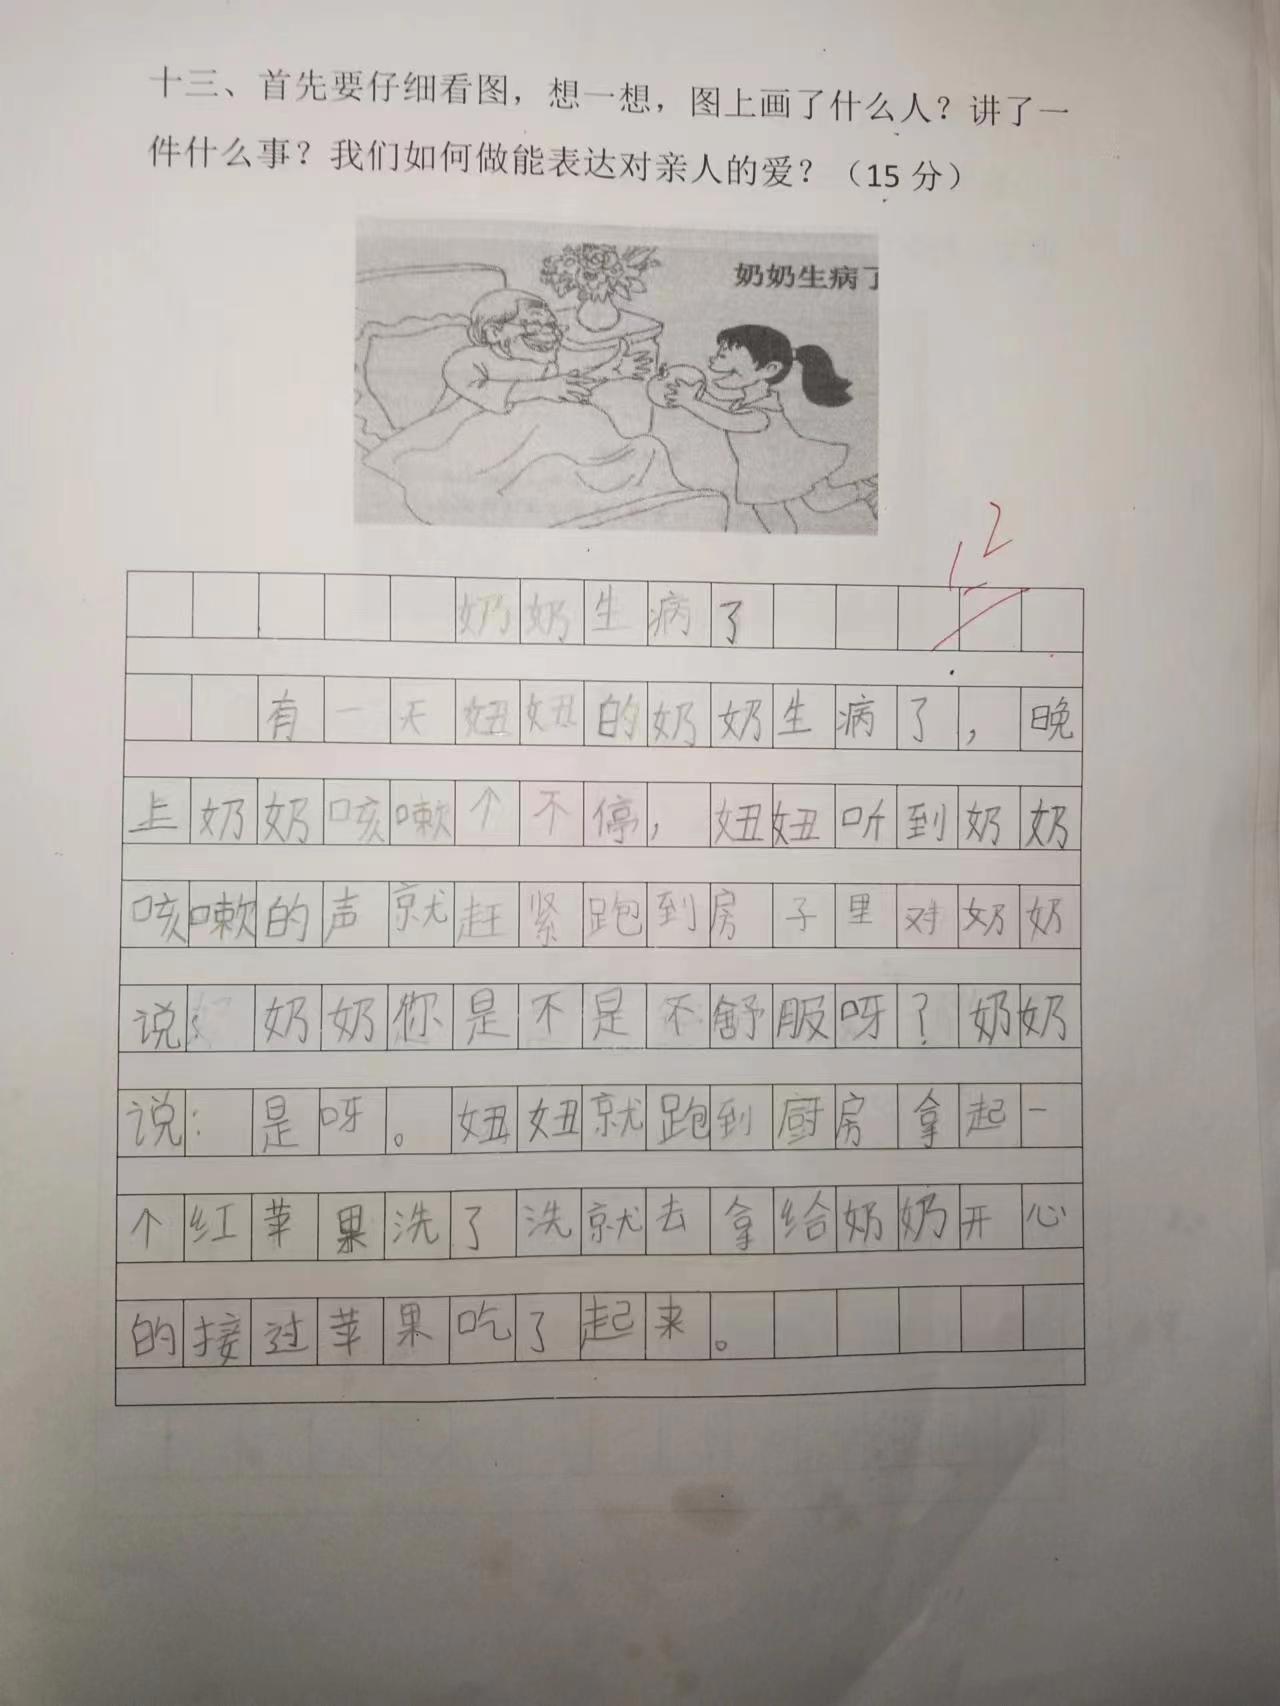 十三、首先要仔细看图，想一想，图上画了什么人？讲了一
件什么事？我们如何做能表达对亲人的爱？（15 分）
奶奶生病了
12
奶奶生病了
有一天妞妞的奶奶生病了，晚
上奶奶咳嗽个不停，妞妞听到奶奶
咳嗽的声就赶紧跑到房子里对奶奶
说：奶奶你是不是不舒服呀？奶奶
说：是呀。妞妞就跑到厨房拿起一
个红苹果洗了洗就去拿给奶奶开心
的接过苹果吃了起来。